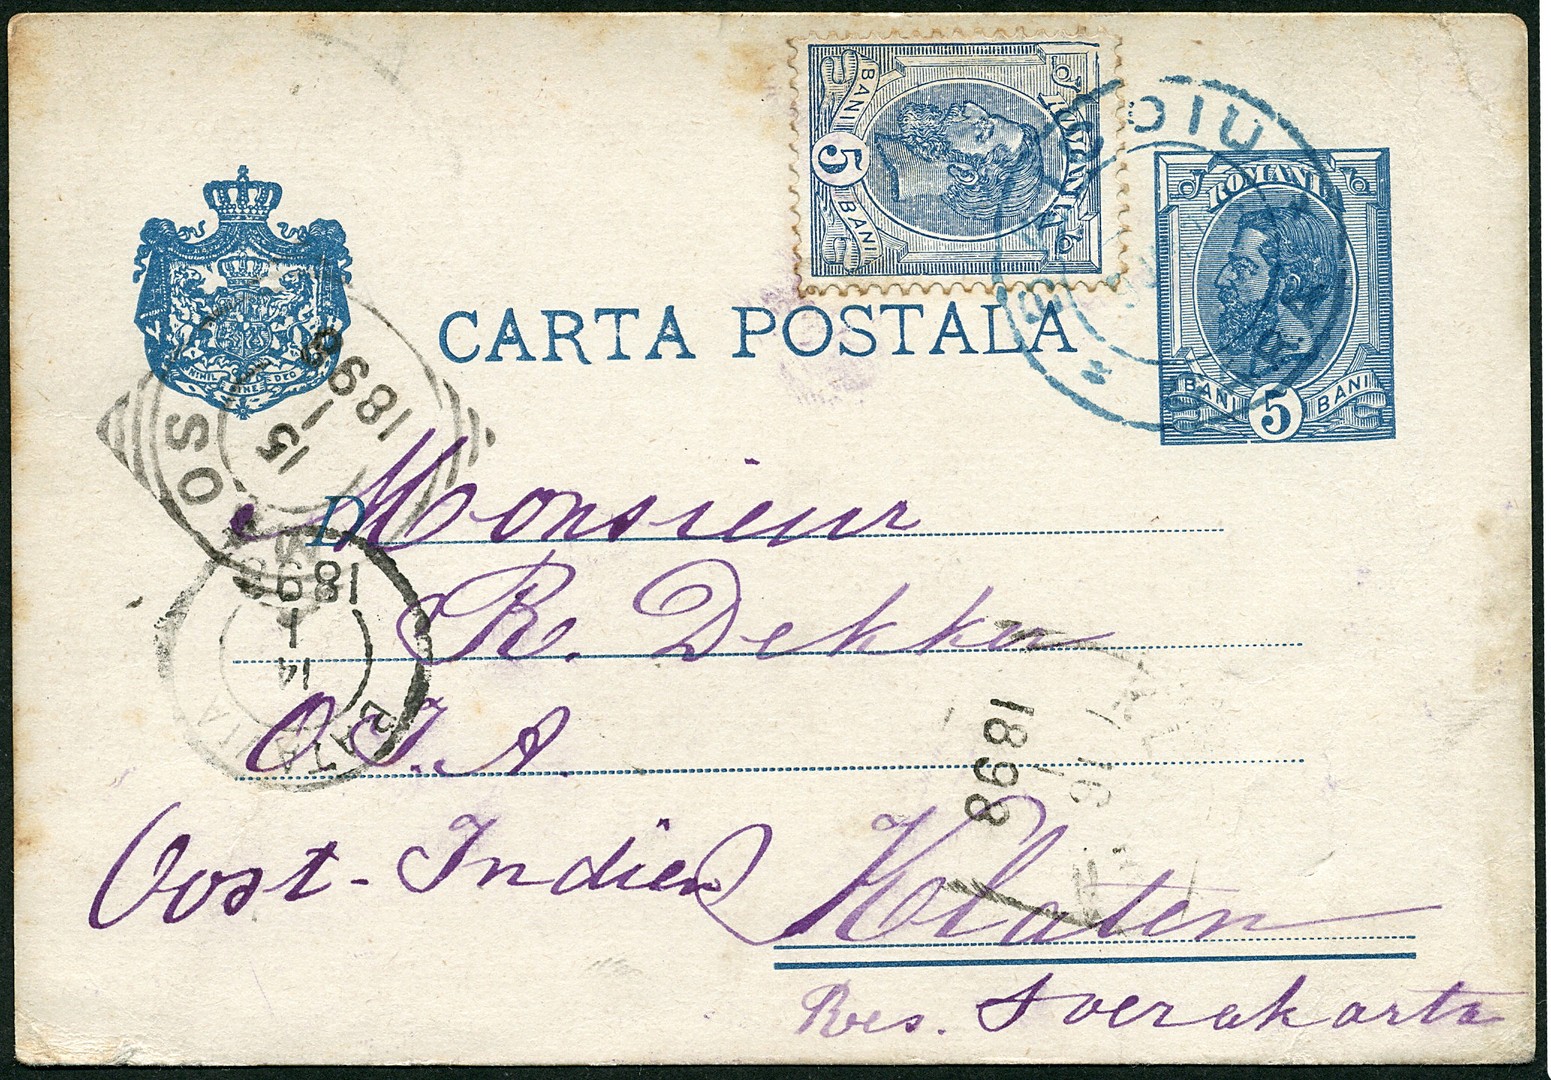 ROMANIA
BANI 5 BANI
ROMANIA
BANI 5 BANI
NIHIL SINE DEO
CARTA POSTALA
D
Monsieur
R. Dekker
O. I. A.
Oost-Indien) Klaten
Res. Soerakarta
SOL
15
1
1898
BATAVIA
14
1
1898
16
1
1898